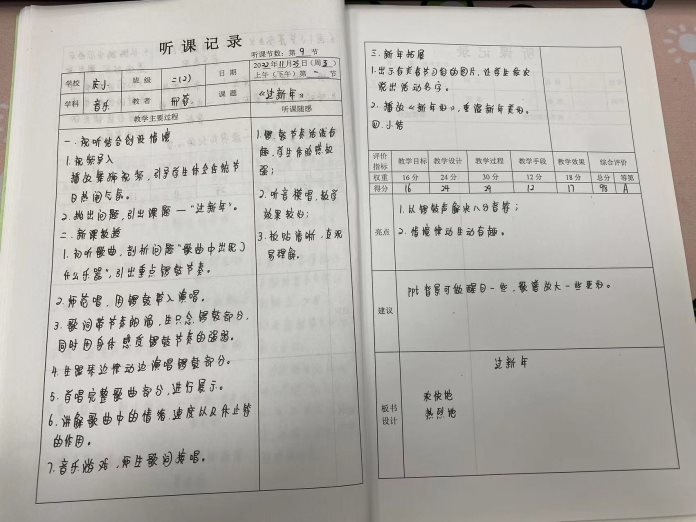 听课记录
听课节数：第9节
学校 实小 班级 二(2) 日期 2022年11月23日(周3)
上午(下午)第一节
学科 音乐 教者 课题 《过新年》
教学主要过程 听课随感
一. 视听结合创设情境
1. 视频导入
播放舞狮视频，引导学生体会春节节
日热闹与氛。
2. 抛出问题，引出课题—"过新年"。
二. 新课教授
1. 初听歌曲，剖析问题"歌曲中出现了
什么乐器"，引出重点锣鼓节奏。
2. 师范唱，用锣鼓带入演唱。
3. 歌词带节奏朗诵，生只念锣鼓部分，
同时用身体感受锣鼓节奏的强弱。
4. 生跟琴边律动边演唱锣鼓部分。
5. 首唱完整歌曲部分，进行展示。
6. 讲解歌曲中的情绪，速度以及休止符
的作用。
7. 音乐游戏，师生歌词接唱。
1. 锣鼓节奏活泼有
趣，学生体验感较
强；
2. 听音模唱，教学
效果较好；
3. 板贴清晰，直观
易理解。
三. 新年拓展
1. 出示有关春节习俗的图片，让学生依次
说出活动名字。
2. 播放《新年好》，重温新年更好。
四. 小结
评价指标 教学目标 教学设计 教学过程 教学手段 教学效果 综合评价
权重 16分 24分 30分 12分 18分 总分 等第
得分 16 24 29 12 17 98 A
亮点
1. 以锣鼓声解决八分音符；
2. 情境律动生动有趣。
建议
PPT背景可做醒目一些，歌谱放大一些更好。
板书
设计
过新年
欢快地
热烈地